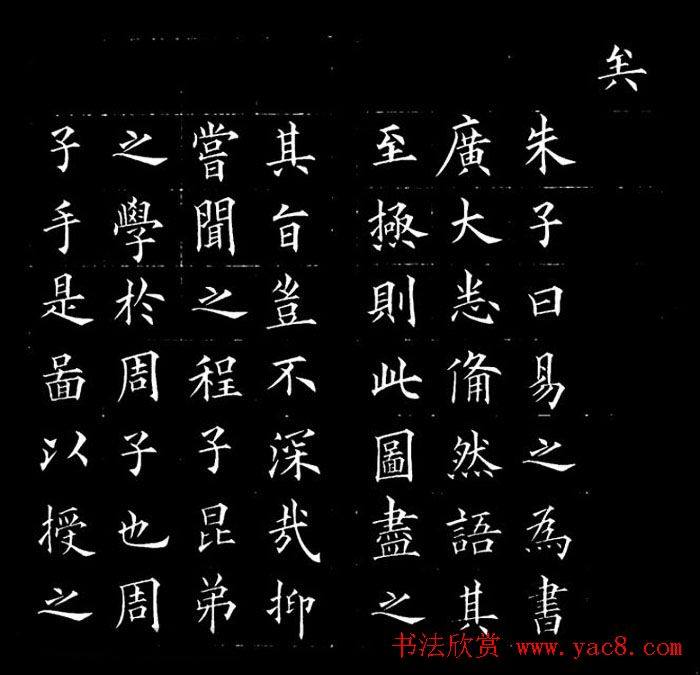 矣
朱子曰易之為書
廣大悉俻然語其
至極則此圖盡之
其旨豈不深哉抑
嘗聞之程子昆弟
之學於周子也周
子手是啚以授之
书法欣赏 www.yac8.com